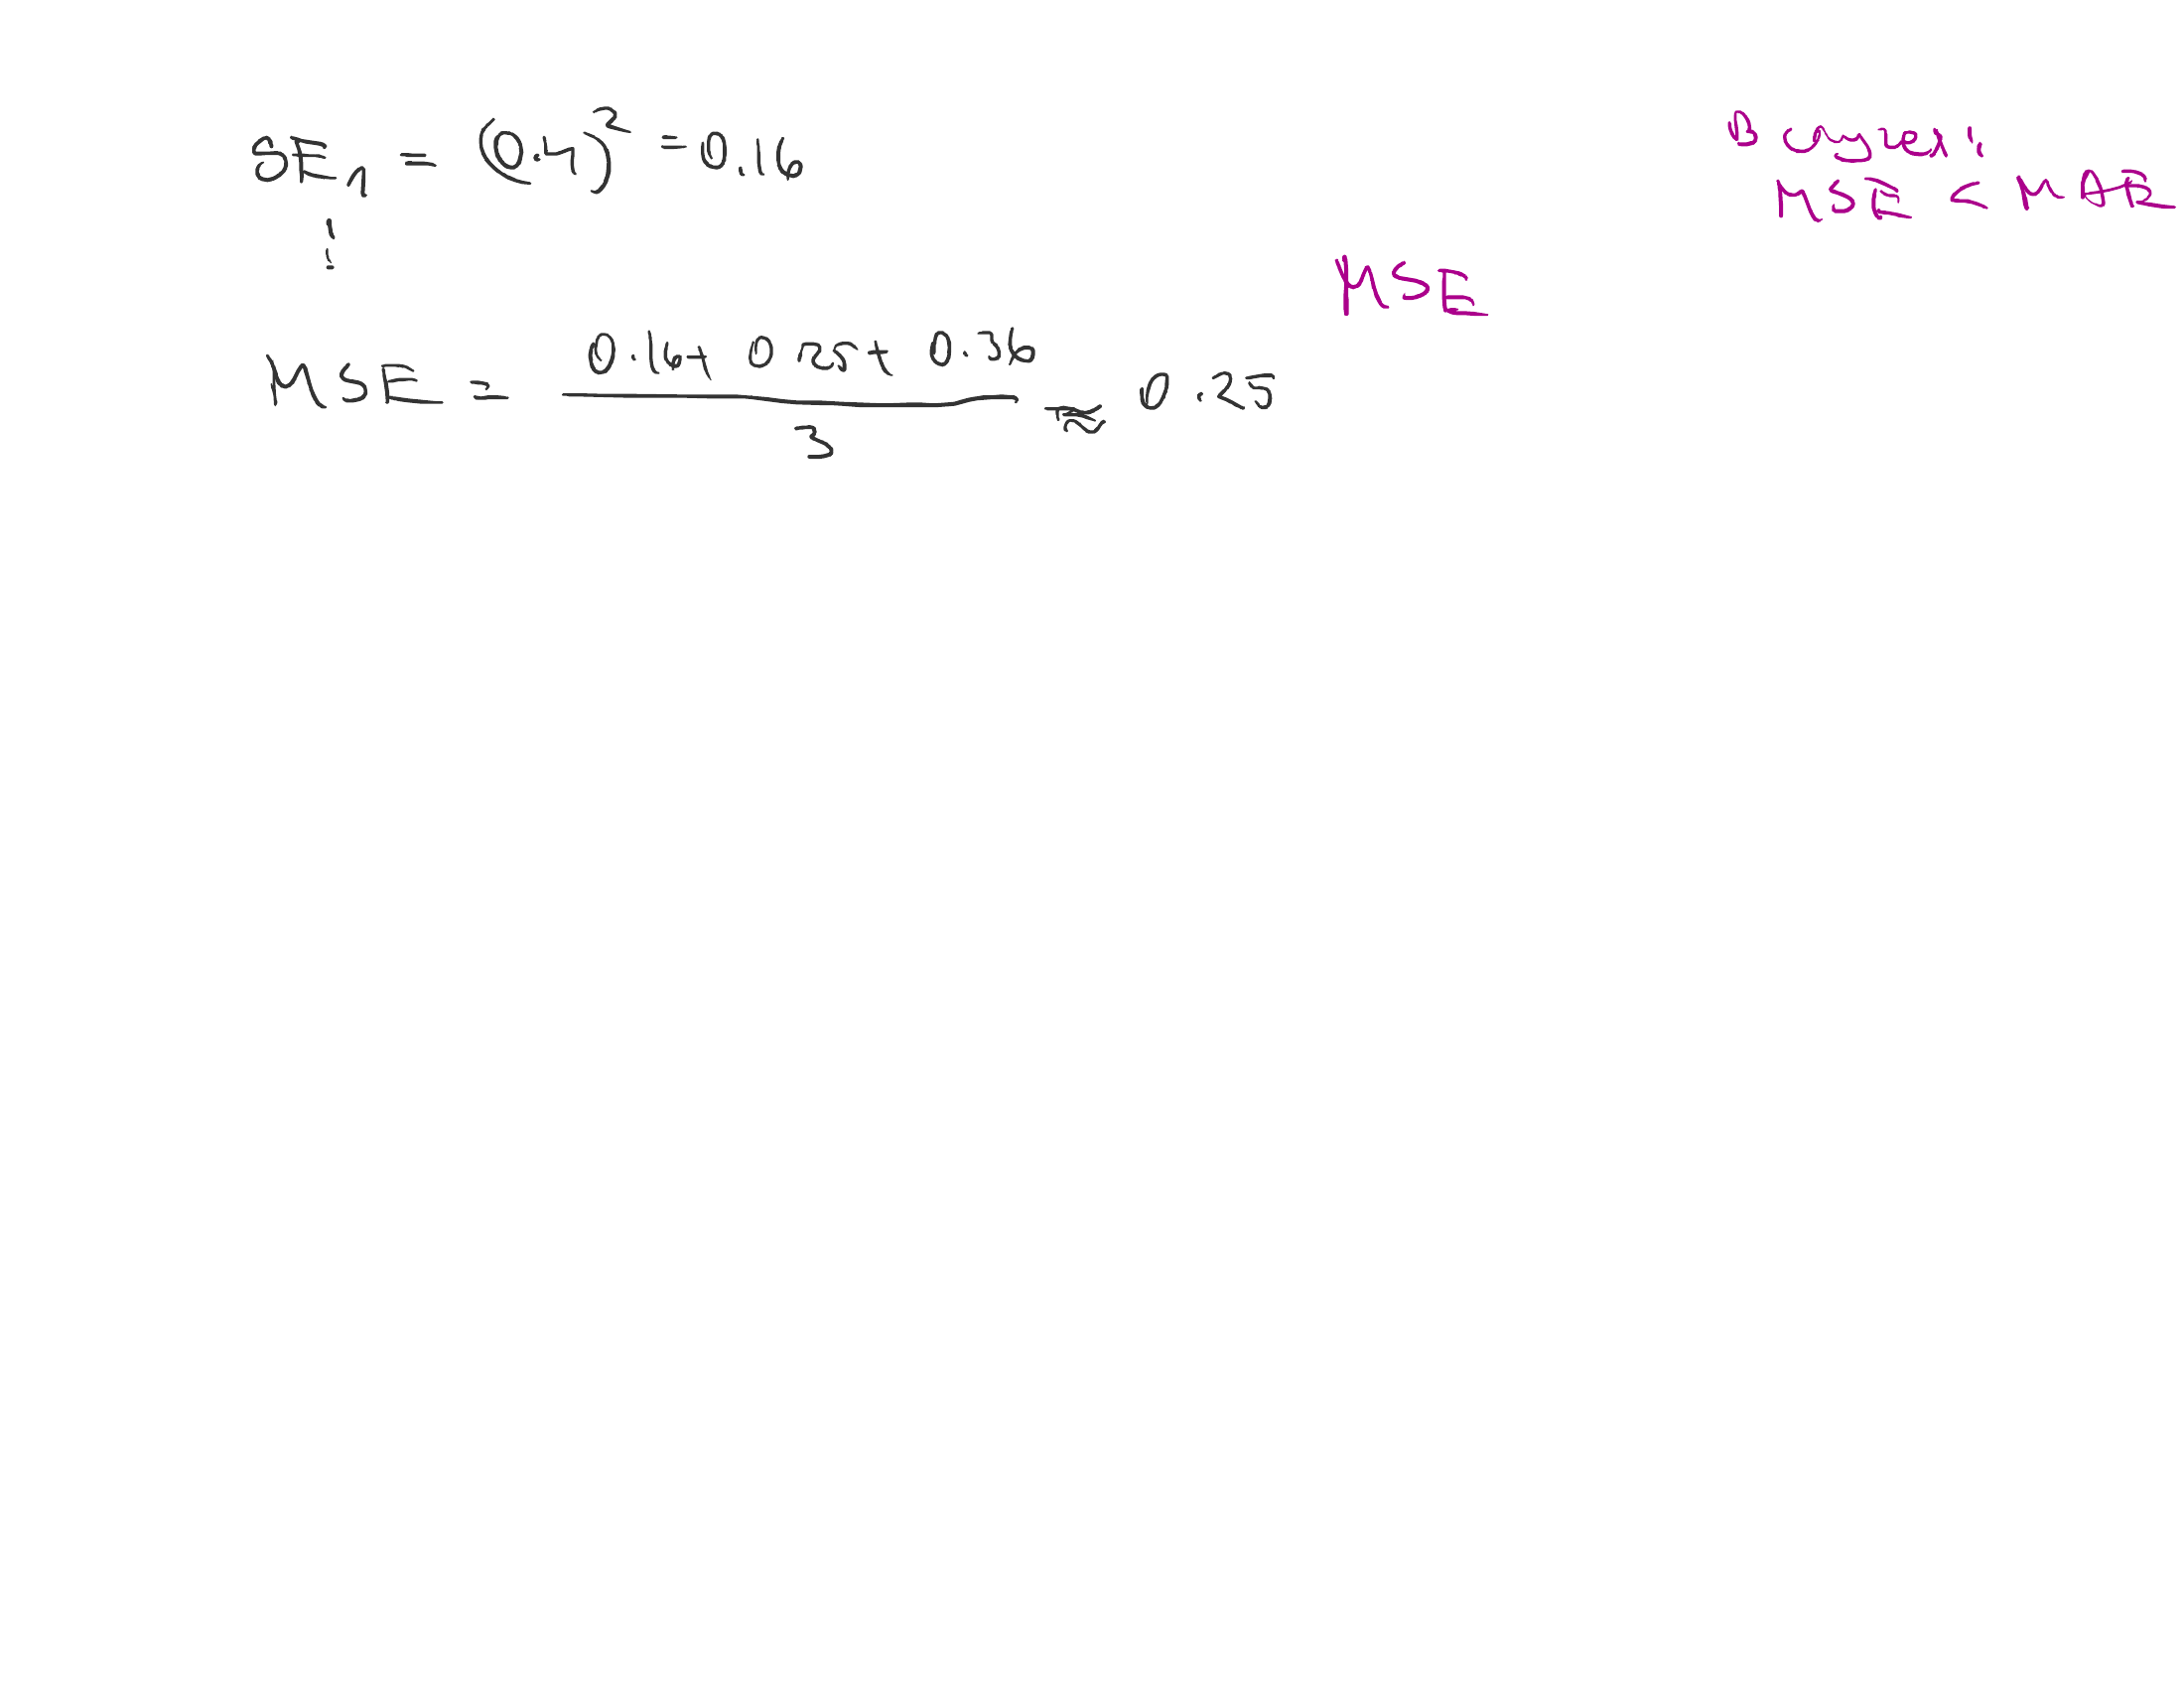 SE₁ = (0.4)² = 0.16
⋮
MSE = (0.16 + 0.25 + 0.36) / 3 ≈ 0.25
MSE
MSE < MAE